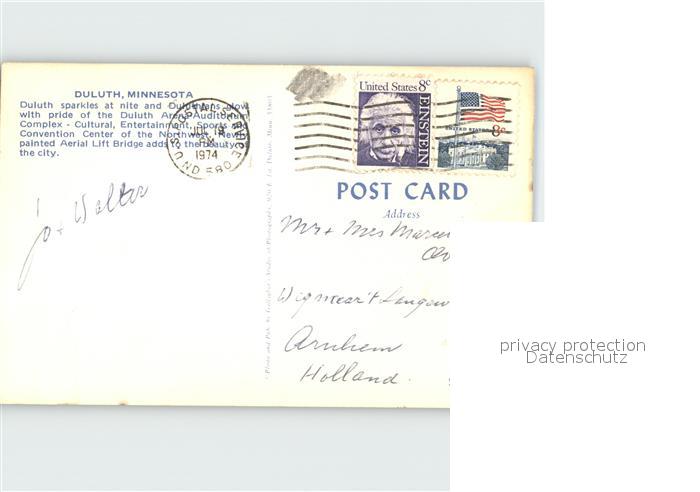 DULUTH, MINNESOTA
Duluth sparkles at nite and Duluthians glow
with pride of the Duluth Arena Auditorium
Complex - Cultural, Entertainment, Sports and
Convention Center of the Northwest. Newly
painted Aerial Lift Bridge adds to the beauty of
the city.
U.S. POSTAL SERVICE
JUL 19
PM
1974
580
United States 8c
EINSTEIN
UNITED STATES 8c
POST CARD
Address
Jo + Walter
Mr + Mrs
Arnhem
Holland.
privacy protection
Datenschutz